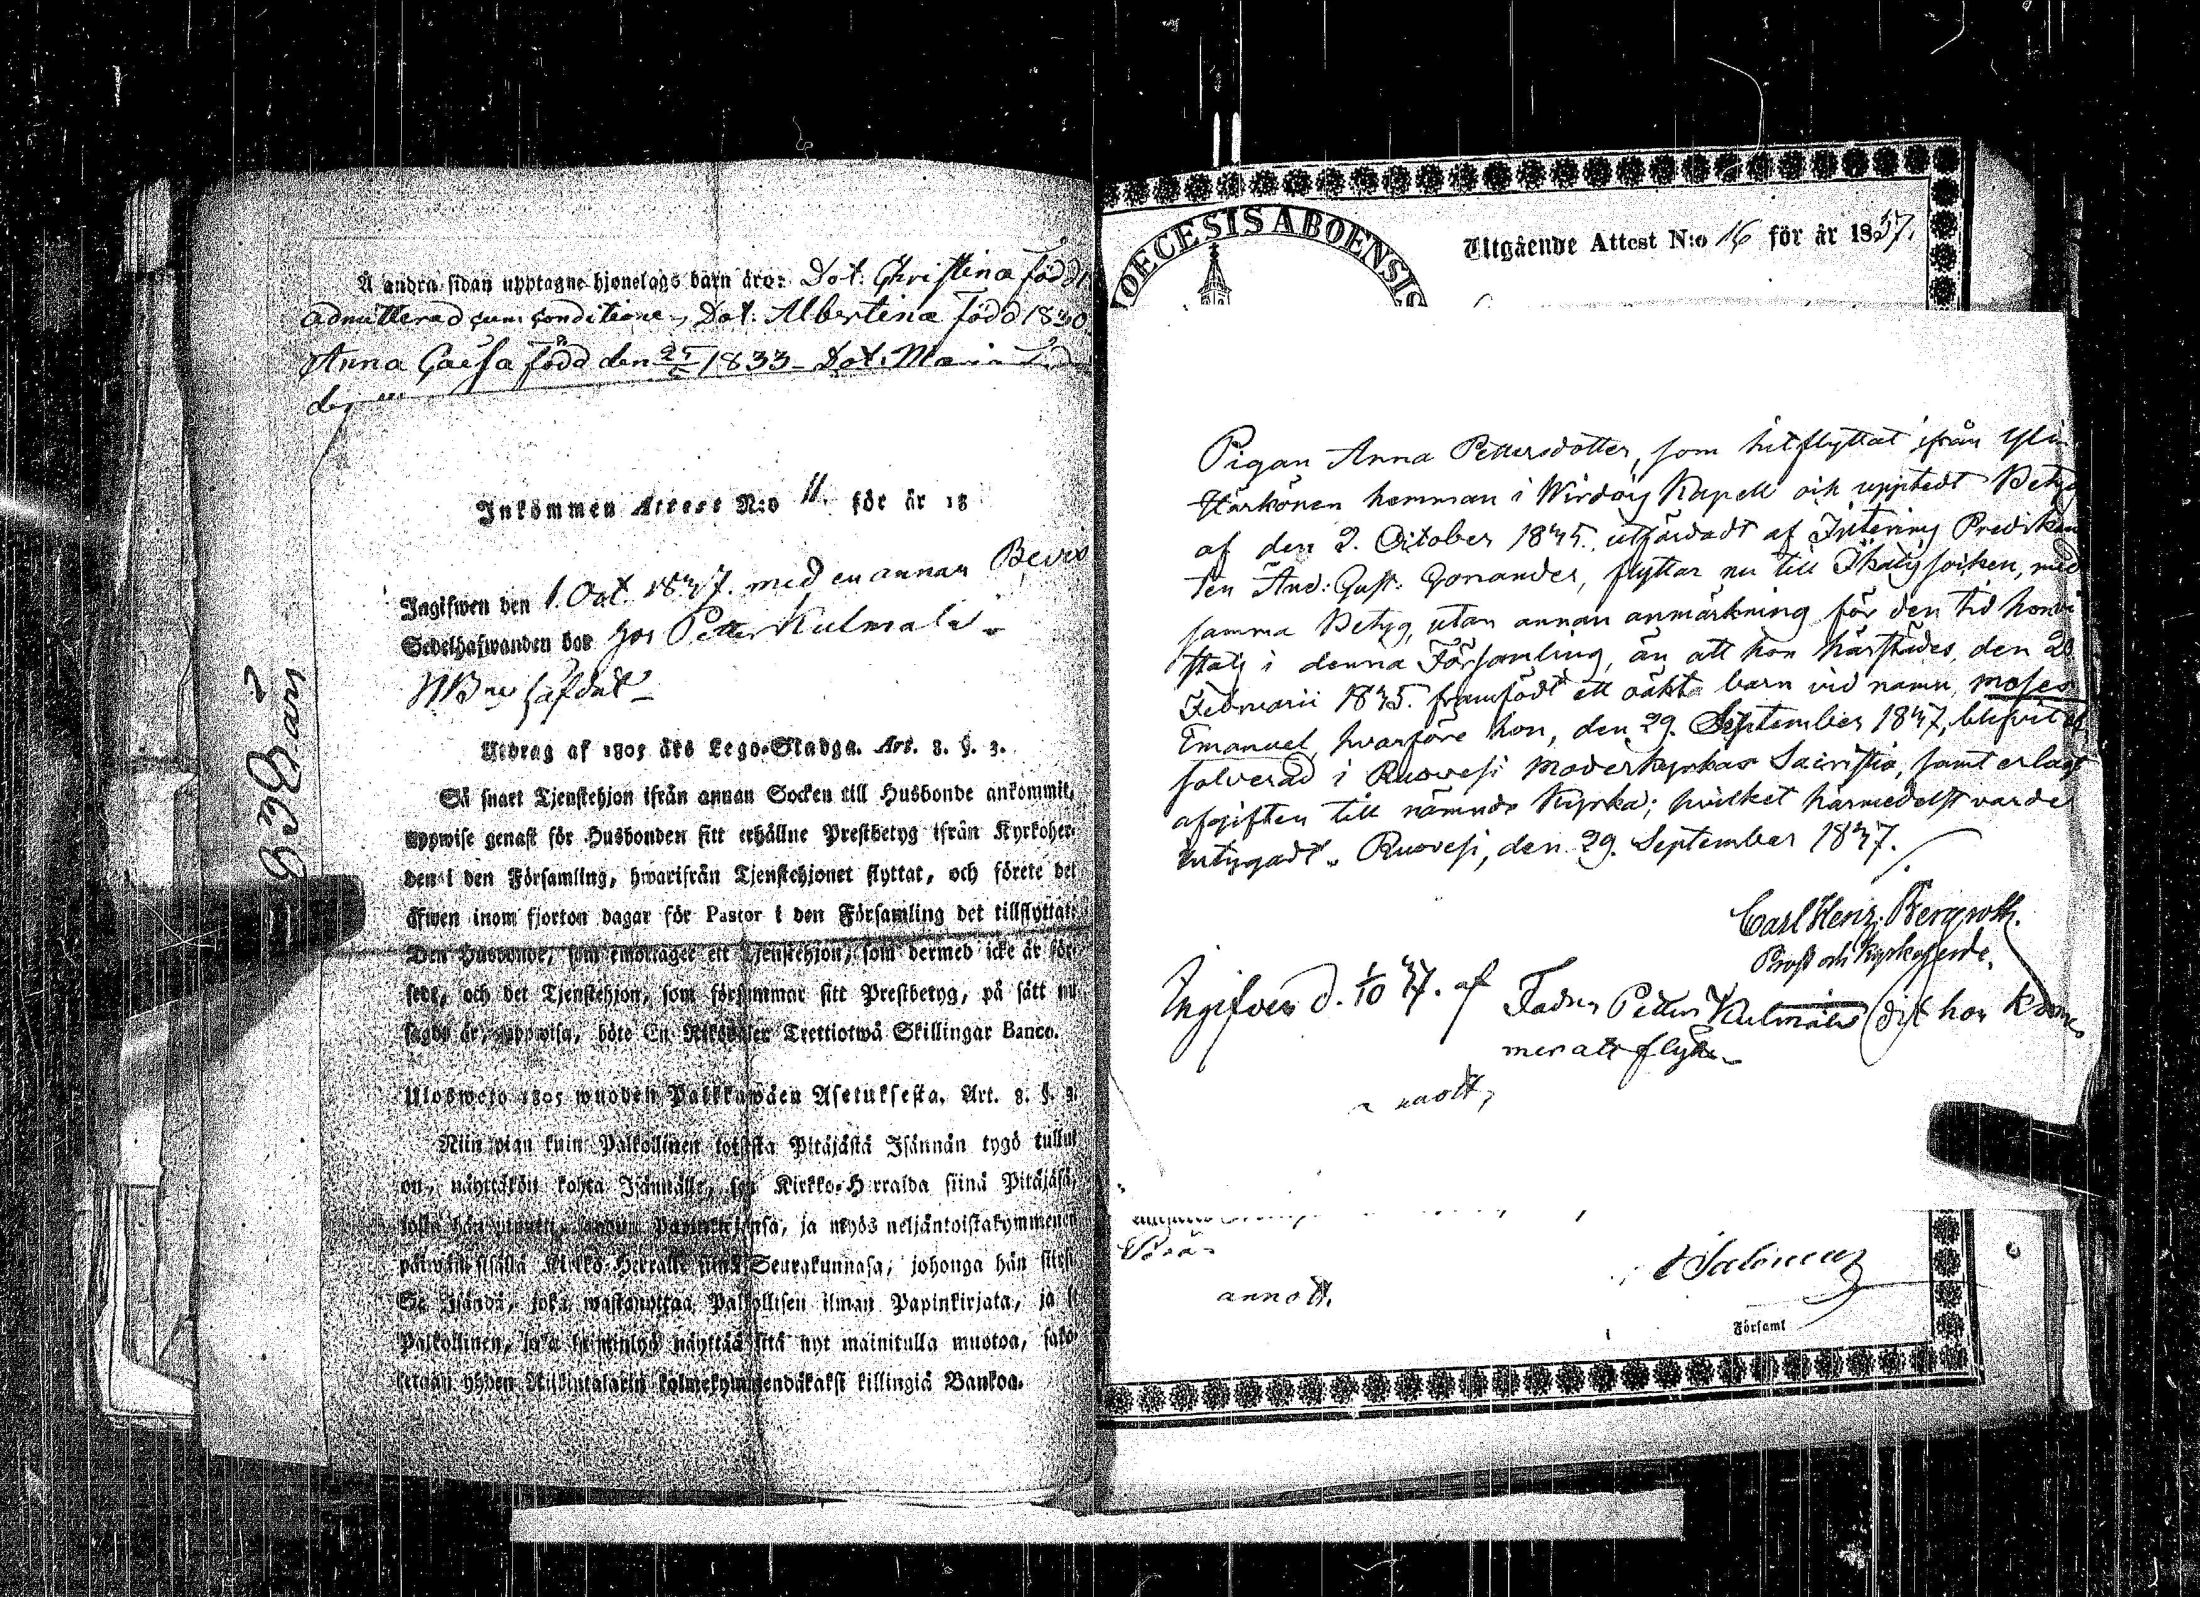 Å andra sidan upptagne hjonelags barn äro: Dot: Christina född
admitterad cum conditione, Dot: Albertina född 1830
Anna Cajsa född den 25/5 1833 Dot: Maria
Inkommen Attest N:o 11. för år 18
Ingifwen den 1 Oct. 1837. med en annan
Sedelhafwanden bor hos Petter Kulmala
Utdrag af 1805 års Lego-Stadga. Art. 8. §. 3.
Så snart Tjenstehjon ifrån annan Socken till Husbonde ankommit,
uppwise genast för Husbonden sitt erhållne Prestbetyg ifrån Kyrkoher-
den i den Församling, hwarifrån Tjenstehjonet flyttat, och förete det
äfwen inom fjorton dagar för Pastor i den Församling det tillflyttat.
Den Husbonde, som emottager ett Tjenstehjon, som dermed icke är för-
sedt, och det Tjenstehjon, som försummar sitt Prestbetyg, på sätt nu
sagdt är, uppwisa, böte En Riksdaler Trettiotwå Skillingar Banco.
Ulosweto 1805 wuoden Palkkawäen Asetuksesta. Art. 8. §. 3.
Niin pian kuin Palkollinen toisesta Pitäjästä Isännän tygö tullut
on, näyttäkön kohta Isännälle, sen Kirkko-Herralda siinä Pitäjäsä,
Papinkirjansa, ja myös neljäntoistakymmenen
päiwän sisällä Kirkko-Herralle siinä Seurakunnasa, johonga hän
Se Isändä, joka wastanottaa Palkollisen ilman Papinkirjata, ja
Palkollinen, joka näyttää sitä nyt mainitulla muotoa,
yhden Riikintalarin kolmekymmendäkaksi killingiä Bankoa.
DIOECESIS ABOENSIS
Utgående Attest N:o 16 för år 1837.
Pigan Anna Pettersdotter, som hitflyttat ifrån Yli
Härkönen hemman i Wirdois Kapell och uppted̄t Betyg
af den 2. October 1835, utfärdadt af Interims Predikan
ten And: Gust: Gonander, flyttar nu till Ikalis socken, med
samma Betyg, utan annan anmärkning för den tid hon vi
stats i denna Församling, än att hon härstädes, den 20
Februarii 1835. framfödt ett oäkta barn vid namn Moses
Emanuel, hvarföre hon, den 29. September 1837, blifvit af
solverad i Ruovesi Moderkyrkas Sacristia, samt erlagt
afgiften till nämnde Kyrka; hvilket härmedelst varder
intygadt. Ruovesi, den 29. September 1837.
Carl Henr: Bergroth.
Prost och Kyrkoherde.
Ingifven d. 1/10 37. af Fadren Petter Kulmala (dit hon kom
mer att flytta
annott.
Salmen
Församl